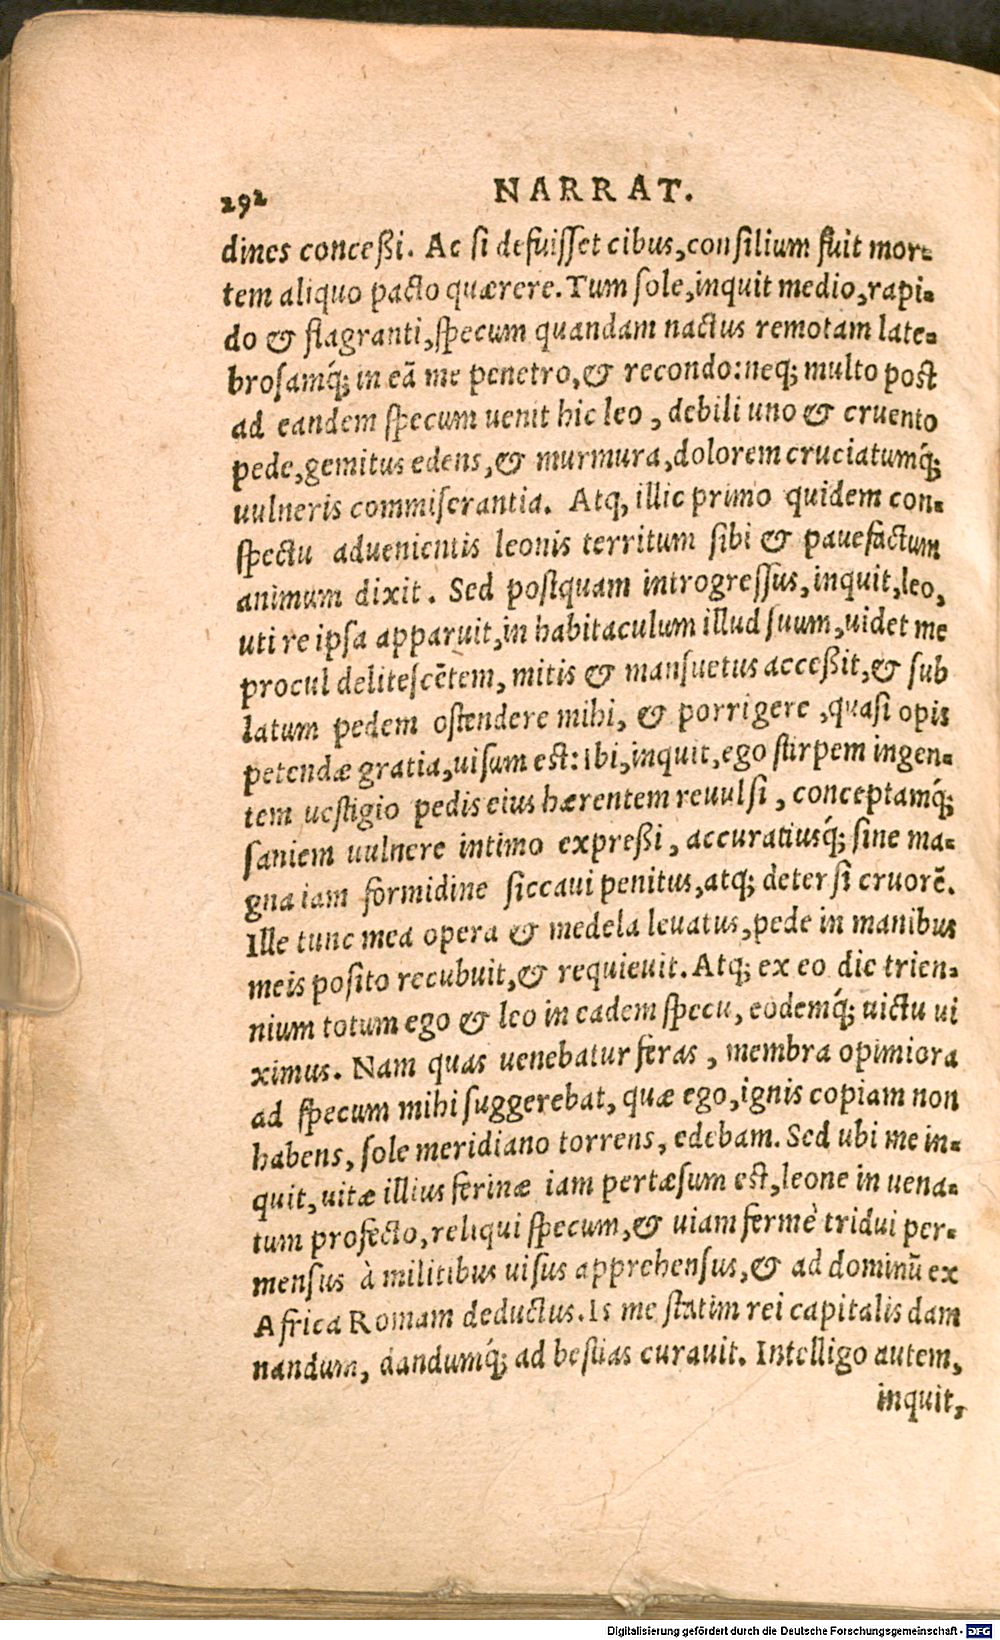 292 NARRAT.
dines conceßi. Ac si defuisset cibus, consilium fuit mor-
tem aliquo pacto quærere. Tum sole, inquit medio, rapi-
do & flagranti, specum quandam nactus remotam late-
brosamq́; in eā me penetro, & recondo: neq; multo post
ad eandem specum uenit hic leo, debili uno & cruento
pede, gemitus edens, & murmura, dolorem cruciatumq́;
uulneris commiserantia. Atq, illic primo quidem con-
spectu aduenientis leonis territum sibi & pauefactum
animum dixit. Sed postquam introgressus, inquit, leo,
uti re ipsa apparuit, in habitaculum illud suum, uidet me
procul delitescētem, mitis & mansuetus acceßit, & sub
latum pedem ostendere mihi, & porrigere, quasi opis
petendæ gratia, uisum est: Ibi, inquit, ego stirpem ingen-
tem uestigio pedis eius hærentem reuulsi, conceptamq́;
saniem uulnere intimo expreßi, accuratiusq́; sine ma-
gna iam formidine siccaui penitus, atq; detersi cruorē.
Ille tunc mea opera & medela leuatus, pede in manibus
meis posito recubuit, & requieuit. Atq; ex eo die trien-
nium totum ego & leo in eadem specu, eodemq́; uictu ui
ximus. Nam quas uenebatur feras, membra opimiora
ad specum mihi suggerebat, quæ ego, ignis copiam non
habens, sole meridiano torrens, edebam. Sed ubi me in-
quit, uitæ illius ferinæ iam pertæsum est, leone in uena-
tum profecto, reliqui specum, & uiam fermè tridui per-
mensus à militibus uisus apprehensus, & ad dominū ex
Africa Romam deductus. Is me statim rei capitalis dam
nandum, dandumq́; ad bestias curauit. Intelligo autem,
inquit,
Digitalisierung gefördert durch die Deutsche Forschungsgemeinschaft - DFG